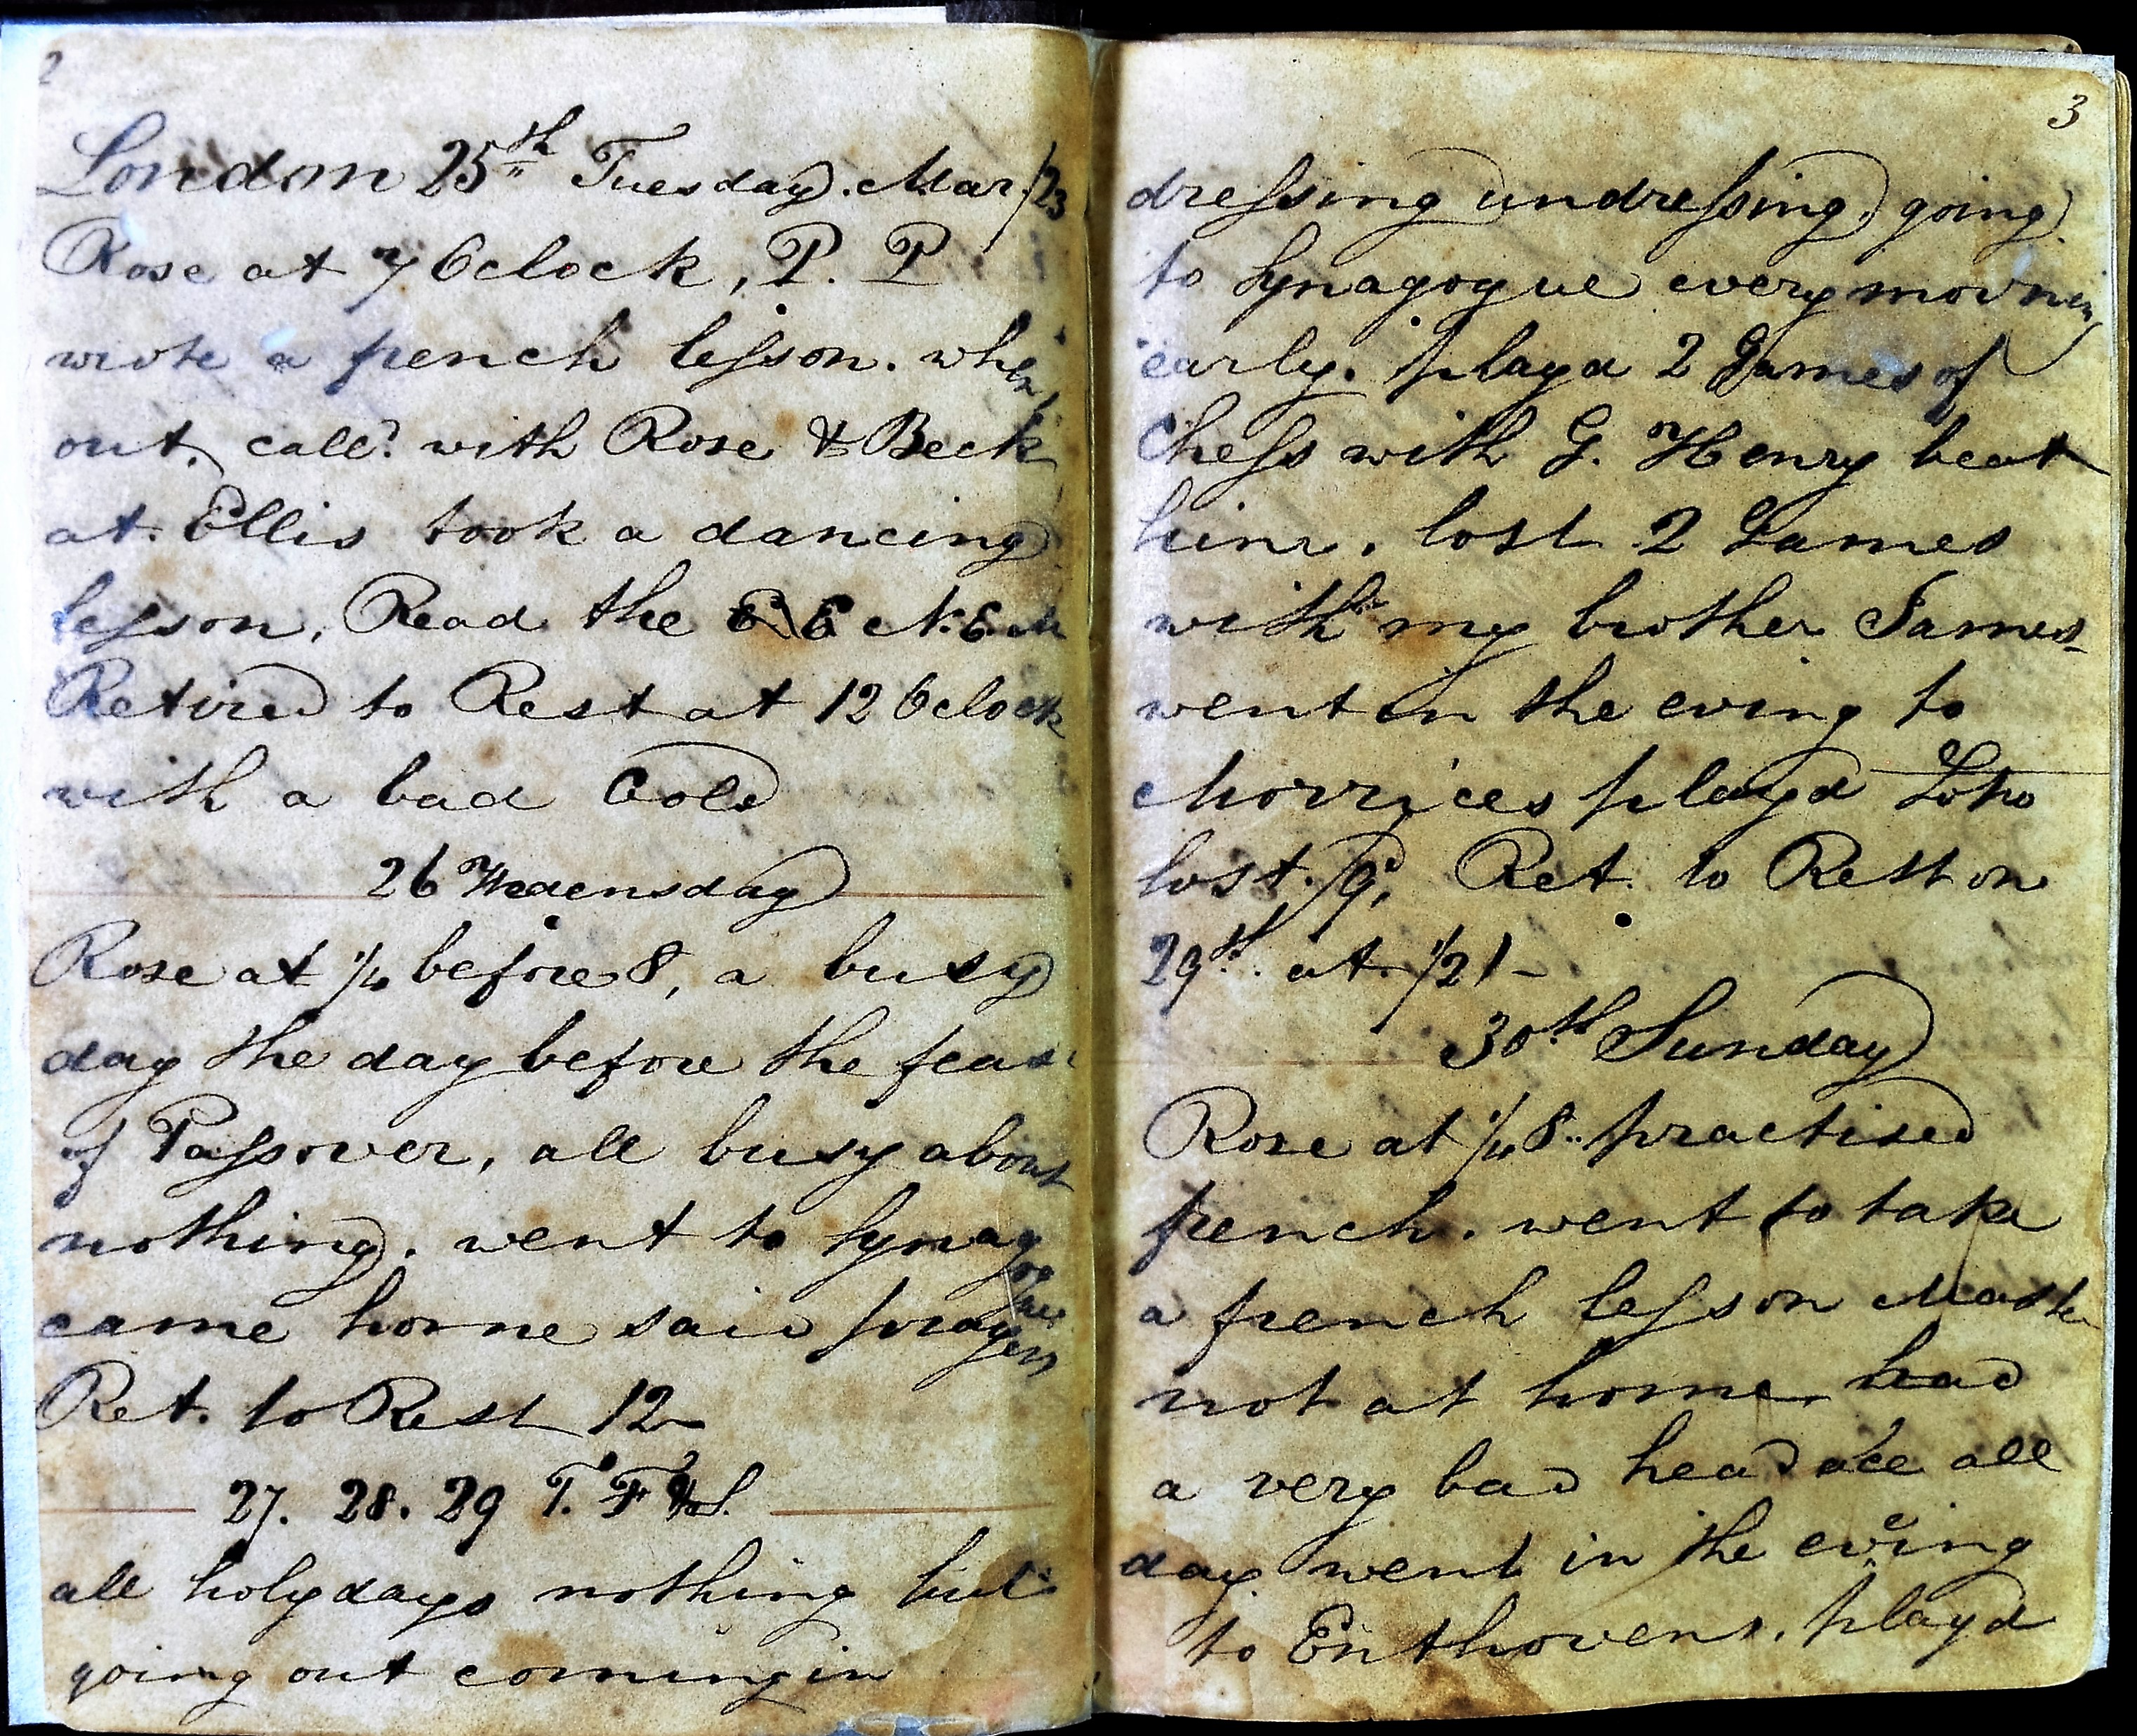 2
London 25th Tuesday. Mar /23
Rose at 7 Oclock, P. P
wrote a french lesson. when
out. calld. with Rose & Beck
at. Ellis took a dancing
lesson, Read the
Retired to Rest at 12 Oclock
with a bad Cold
26 Wedensday
Rose at 1/4 before 8, a busy
day the day before the feast
of Passover, all busy about
nothing. went to Synagogue
came home said prayers
Ret. to Rest 12
27. 28. 29 T. F & S.
all holydays nothing but
going out coming in
3
dressing undressing, going
to Synagogue every morning
early. playd 2 Games of
Chess with G. Henry beat
him. lost 2 Games
with my brother James
went in the eving to
Morrices playd Loto
lost /9, Ret. to Rest on
29th. at. 1/2 1-
30th Sunday
Rose at 1/4 8.. practised
french. went to take
a french lesson Master
not at home had
a very bad headake all
day went in the eveing
to Enthovens. playd